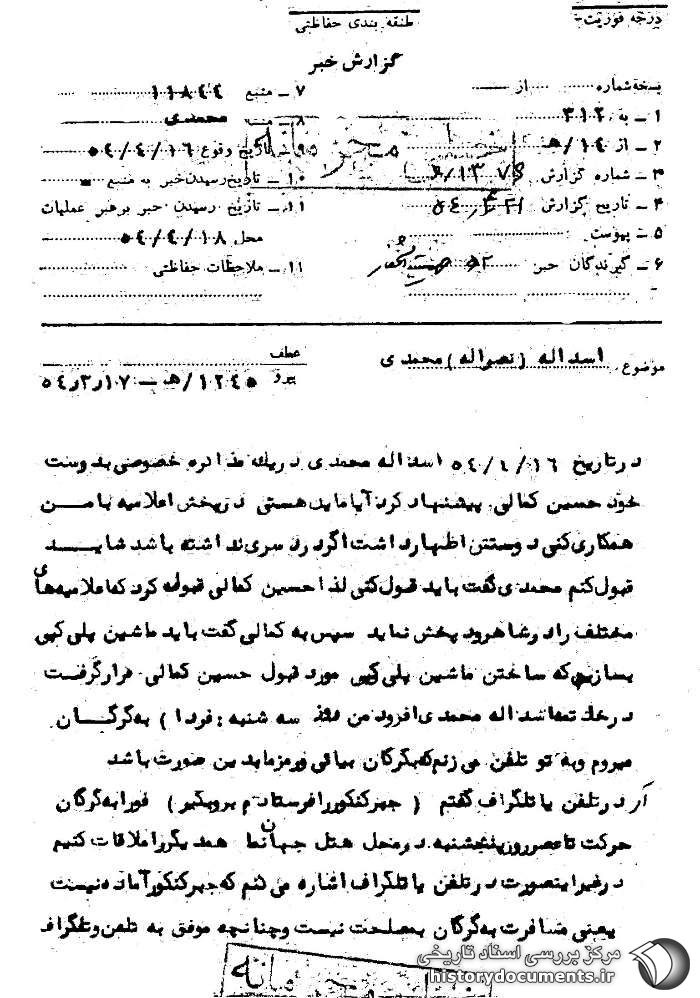 درجه فوریت
طبقه بندی حفاظتی
گزارش خبر
نسخه شماره ........ از ........
۷ ـ منبع ۱۱۸۴۴
۱ ـ به ۳۱۲
۸ ـ محمدی
۲ ـ از ۱۴/هـ
۹ ـ تاریخ وقوع ۵۴/۴/۱۶
۳ ـ شماره گزارش
۱۰ ـ تاریخ رسیدن خبر به منبع
۴ ـ تاریخ گزارش
۱۱ ـ تاریخ رسیدن خبر برهبر عملیات
۵ ـ پیوست
محل ۵۴/۴/۱۸
۶ ـ گیرندگان خبر
۱۱ ـ ملاحظات حفاظتی
موضوع: اسداله (نصراله) محمدی
عطف
پیرو ۱۲۴۵/هـ – ۵۴٫۳٫۱۷
درتاریخ ۵۴/۴/۱۶ اسداله محمدی دریک مذاکره خصوصی بدوست
خود حسین کمالی پیشنهاد کرد آیا مایل هستی درپخش اعلامیه بامن
همکاری کنی دوستش اظهارداشت اگردردسری نداشته باشد شاید
قبول کنم محمدی گفت باید قبول کنی لذا حسین کمالی قبول کرد که اعلامیه های
مختلف را درشاهرود پخش نماید سپس به کمالی گفت باید ماشین پلی کپی
بسازیم که ساختن ماشین پلی کپی مورد قبول حسین کمالی قرارگرفت
درخاتمه اسداله محمدی افزود من روز سه شنبه (فردا) به گرگان
میروم وبه تو تلفن می زنم که بگرگان بیائی ورمزما بدین صورت باشد
اگر درتلفن یا تلگراف گفتم (جهرکنکور را فرستادم بروبگیر) فورا به گرگان
حرکت تا عصرروز پنجشنبه درمحل هتل جهان نما همدیگررا ملاقات کنیم
درغیراینصورت درتلفن یا تلگراف اشاره می کنم که جهرکنکور آماده نیست
یعنی مسافرت به گرگان بمصلحت نیست وچنانچه موفق به تلفن وتلگراف
مرکز بررسی اسناد تاریخی
historydocuments.ir